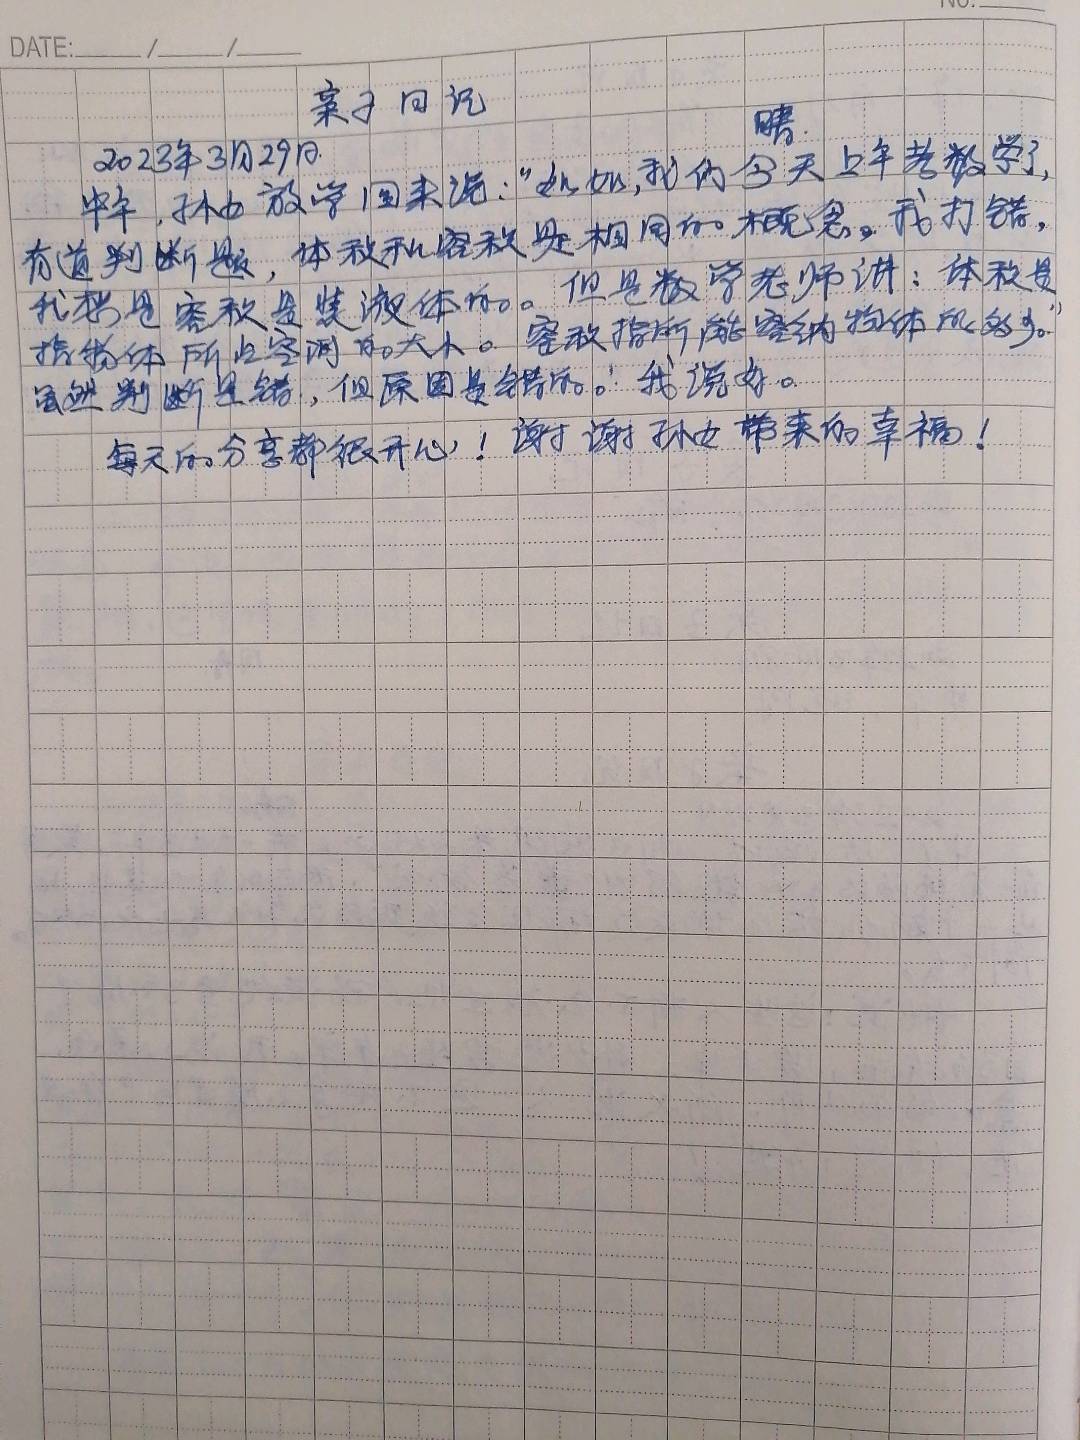 No.
DATE: / /
亲子日记
2023年3月29日 晴.
中午,孙女放学回来说:"奶奶,我们今天上午考数学了,
有道判断题,体积和容积是相同的概念。我打错,
我想是容积是装液体的。但是数学老师讲:体积是
指物体所占空间的大小。容积指所能容纳物体的多少。"
虽然判断是错,但原因是错的。我说好。
每天的分享都很开心!谢谢孙女带来的幸福!